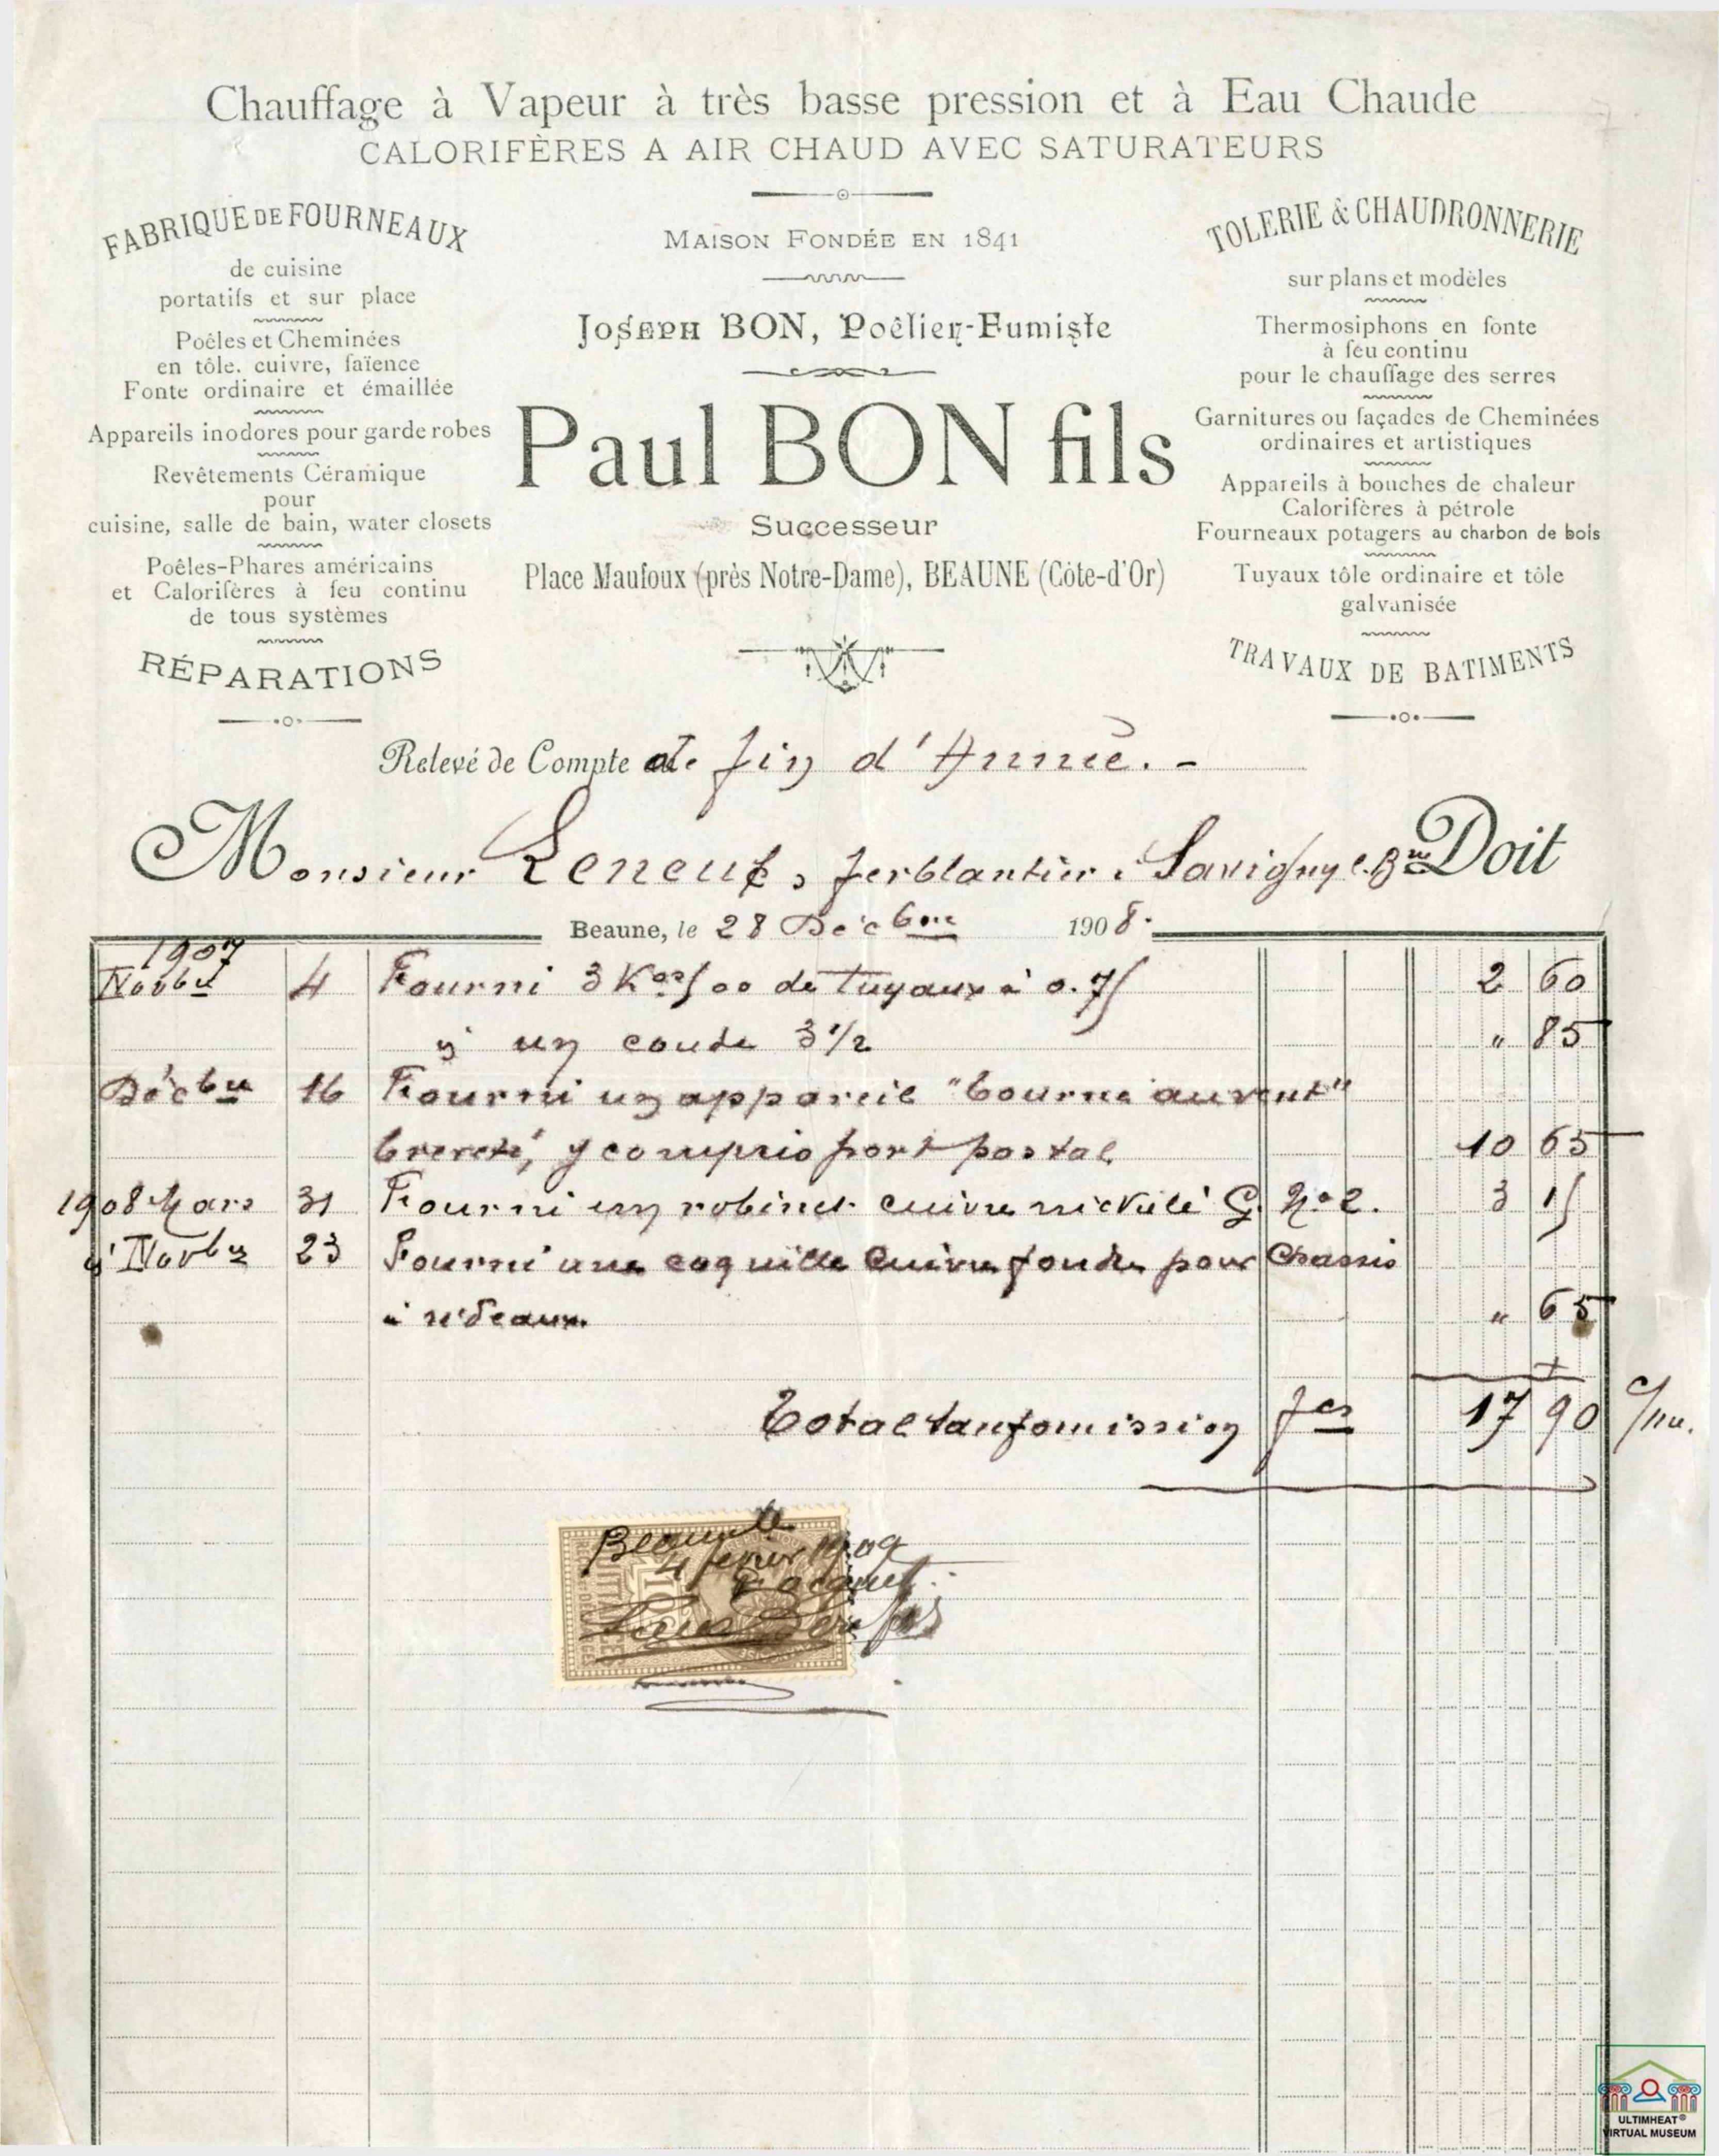 Chauffage à Vapeur à très basse pression et à Eau Chaude
CALORIFÈRES A AIR CHAUD AVEC SATURATEURS
FABRIQUE DE FOURNEAUX
de cuisine
portatifs et sur place
Poêles et Cheminées
en tôle, cuivre, faïence
Fonte ordinaire et émaillée
Appareils inodores pour garde robes
Revêtements Céramique
pour
cuisine, salle de bain, water closets
Poêles-Phares américains
et Calorifères à feu continu
de tous systèmes
RÉPARATIONS
MAISON FONDÉE EN 1841
JOSEPH BON, Poêlier-Fumiste
Paul BON fils
Successeur
Place Maufoux (près Notre-Dame), BEAUNE (Côte-d'Or)
TOLERIE & CHAUDRONNERIE
sur plans et modèles
Thermosiphons en fonte
à feu continu
pour le chauffage des serres
Garnitures ou façades de Cheminées
ordinaires et artistiques
Appareils à bouches de chaleur
Calorifères à pétrole
Fourneaux potagers au charbon de bois
Tuyaux tôle ordinaire et tôle
galvanisée
TRAVAUX DE BATIMENTS
Relevé de Compte de fin d'Année. -
Monsieur Leneuf, ferblantier. Savigny l. Bne Doit
Beaune, le 28 Décbre 1908.
1907
Novbre 4 Fourni 3 Kos 500 de tuyaux à 0.75 2 60
d° un coude 3 1/2 " 85
Décbre 16 Fourni un appareil "tourne au vent"
breveté, y compris port postal 10 65
1908 Mars 31 Fourni un robinet cuivre nickelé G. No 2. 3 15
d° Novbre 23 Fourni une coquille cuivre fondu pour Chassis
à rideaux. " 65
Total sauf omission fcs 17 90
Beaune le
4 fevrier 1909
Pr acquit
Paul Bon fils
QUITTANCES
ULTIMHEAT®
VIRTUAL MUSEUM